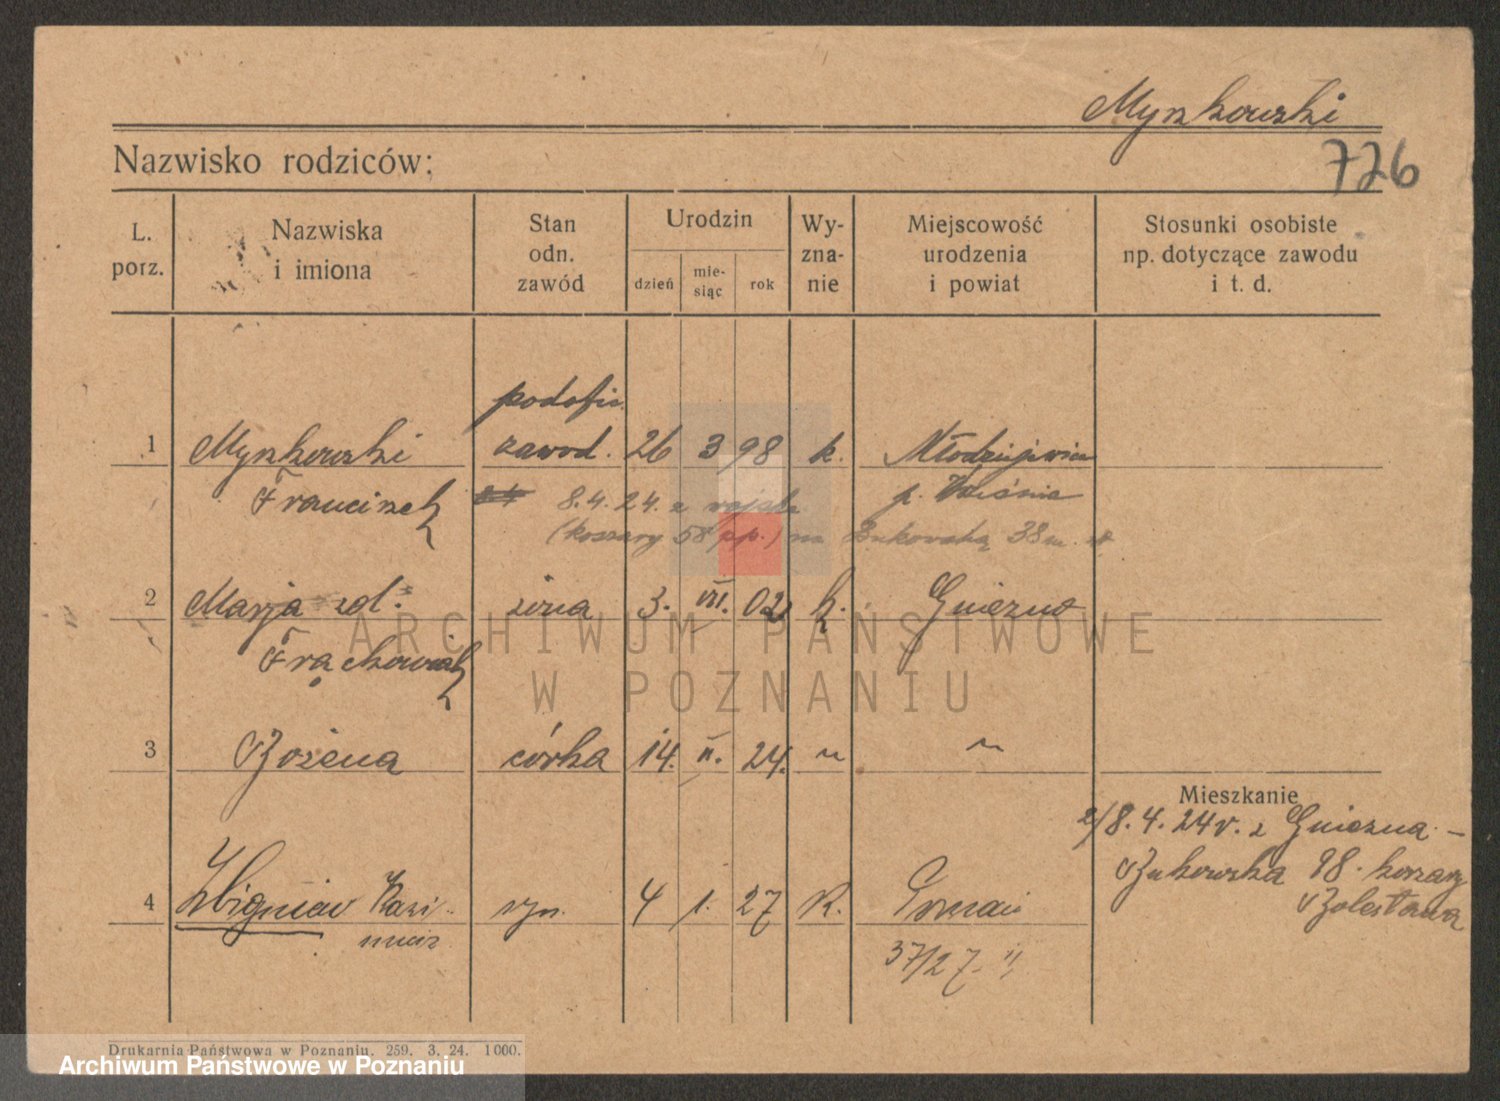 Myszkowski
Nazwisko rodziców:
726
L. porz.
Nazwiska i imiona
Stan odn. zawód
Urodzin
dzień
mie- siąc
rok
Wy- zna- nie
Miejscowość urodzenia i powiat
Stosunki osobiste np. dotyczące zawodu i t. d.
podofic.
1 Myszkowski zawod. 26 3 98 k.
Franciszek p. Września
8.4.24. z wojska
(koszary 58 pp.) na Bukowską 38 m.
2 Marja zd. żona 3. VII. 02 k. Gniezno
Frąckowiak
3 Bożena córka 14. II. 24. " "
Mieszkanie
8.4.24 r. z Gniezna -
Bukowska 98. koszary
4 Zbigniew Kazi- syn. 4 1. 27 K. Poznań
mierz 37/27. II
Drukarnia Państwowa w Poznaniu. 259. 3. 24. 1000.
ARCHIWUM PAŃSTWOWE
W POZNANIU
Archiwum Państwowe w Poznaniu